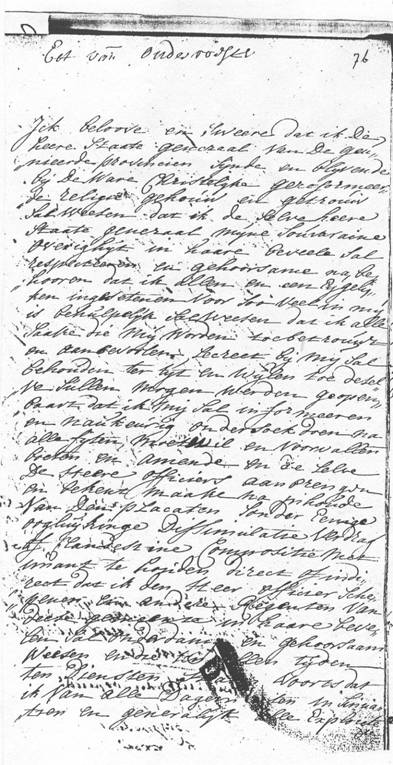 Eet van Ondervooght 76
Ick beloove en Sweere dat ik De
heere Staate generaal Van De geu„
nieerde provincien Synde en blyvende
by De Ware Christelyke gereformeer„
de religie gehouw en getrouw
Sal Weesen dat ik de Selve heere
Staate generaal myne Souveraine
overigheyt in haare bevelen Sal
respecteeren en gehoorsame na be
hooren dat ik allen en een ygelyk
ken ingesetenen Voor Soo Veel in my
is behulpelyk Sal Weesen dat ik alle
Saake die my Worden toebetrouwt
en aanbevoolen Secreet by my Sal
behouden ter tyt en Wylen toe desel
ve Sullen mogen werden geopen„
baart dat ik my Sal informeeren
en naukeurig ondersoek doen na
alle en Voorvallen
en amende en die Selve
De Heere officiers aanbrengen
en bekent maake na inhoude
Van Den placcaten Sonder eenige
Dissimulatie Verdrag
of Clandestine Compositie met
imant te houden direct of indi„
rect dat ik den Heer officier Sche„
penen en andere Regenten Van
Deese in haare beve„
len Sal en gehoorsaam
Weesen en tyden
ten Diensten Voorts dat
ik Van alle
en generalyk alle Exploicte